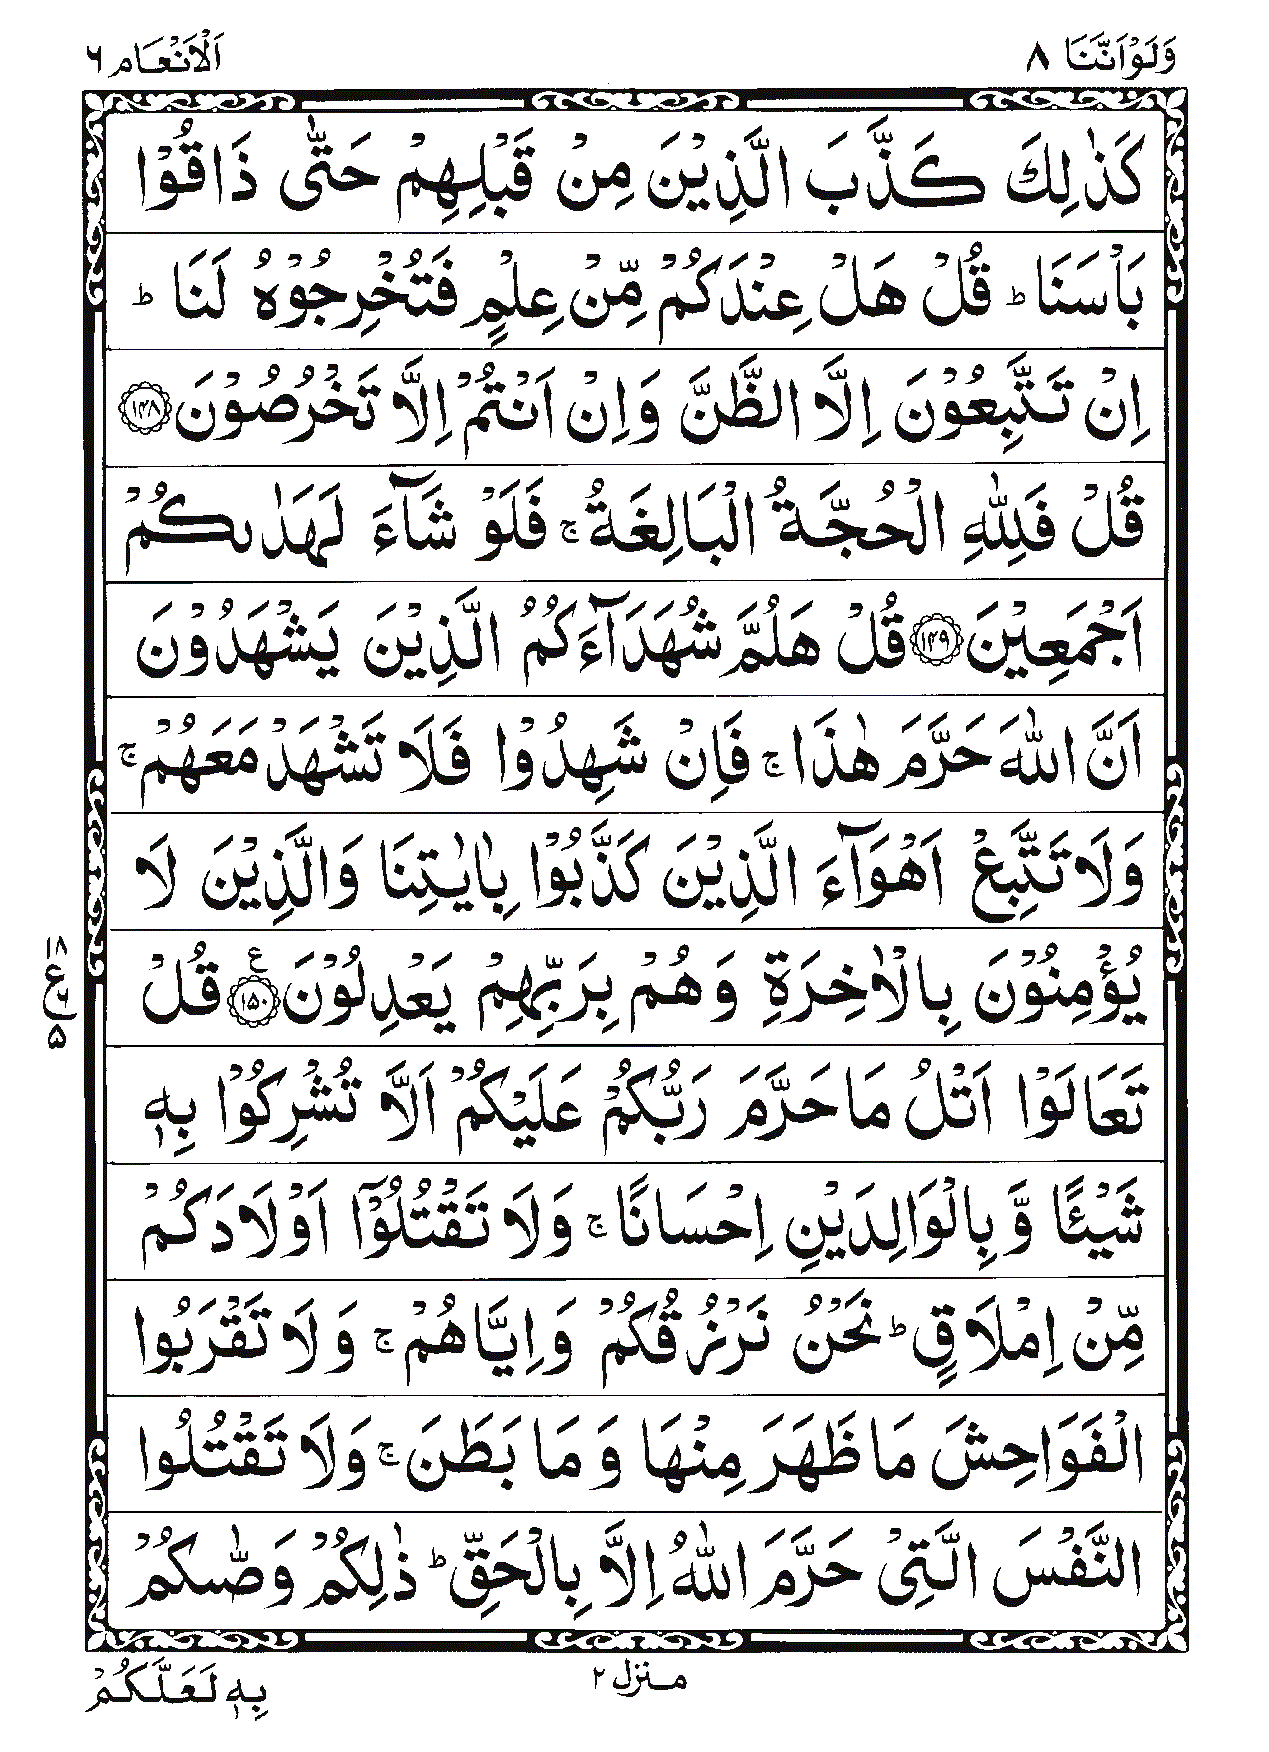 وَلَوْاَنَّنَا ٨
اَلْاَنْعَام ٦
كَذٰلِكَ كَذَّبَ الَّذِيْنَ مِنْ قَبْلِهِمْ حَتّٰى ذَاقُوْا
بَاْسَنَا ؕ قُلْ هَلْ عِنْدَكُمْ مِّنْ عِلْمٍ فَتُخْرِجُوْهُ لَنَا ؕ
اِنْ تَتَّبِعُوْنَ اِلَّا الظَّنَّ وَاِنْ اَنْتُمْ اِلَّا تَخْرُصُوْنَ ﴿١٤٨﴾
قُلْ فَلِلّٰهِ الْحُجَّةُ الْبَالِغَةُ ۚ فَلَوْ شَآءَ لَهَدٰىكُمْ
اَجْمَعِيْنَ ﴿١٤٩﴾ قُلْ هَلُمَّ شُهَدَآءَكُمُ الَّذِيْنَ يَشْهَدُوْنَ
اَنَّ اللّٰهَ حَرَّمَ هٰذَا ۚ فَاِنْ شَهِدُوْا فَلَا تَشْهَدْ مَعَهُمْ ۚ
وَلَا تَتَّبِعْ اَهْوَآءَ الَّذِيْنَ كَذَّبُوْا بِاٰيٰتِنَا وَالَّذِيْنَ لَا
يُؤْمِنُوْنَ بِالْاٰخِرَةِ وَهُمْ بِرَبِّهِمْ يَعْدِلُوْنَ ﴿١٥٠﴾ ع قُلْ
١٨ ع ٦ ٥
تَعَالَوْا اَتْلُ مَا حَرَّمَ رَبُّكُمْ عَلَيْكُمْ اَلَّا تُشْرِكُوْا بِهٖ
شَيْئًا وَّ بِالْوَالِدَيْنِ اِحْسَانًا ۚ وَلَا تَقْتُلُوْۤا اَوْلَادَكُمْ
مِّنْ اِمْلَاقٍ ؕ نَحْنُ نَرْزُقُكُمْ وَاِيَّاهُمْ ۚ وَلَا تَقْرَبُوا
الْفَوَاحِشَ مَا ظَهَرَ مِنْهَا وَ مَا بَطَنَ ۚ وَلَا تَقْتُلُوا
النَّفْسَ الَّتِيْ حَرَّمَ اللّٰهُ اِلَّا بِالْحَقِّ ؕ ذٰلِكُمْ وَصّٰىكُمْ
منزل ٢
بِهٖ لَعَلَّكُمْ